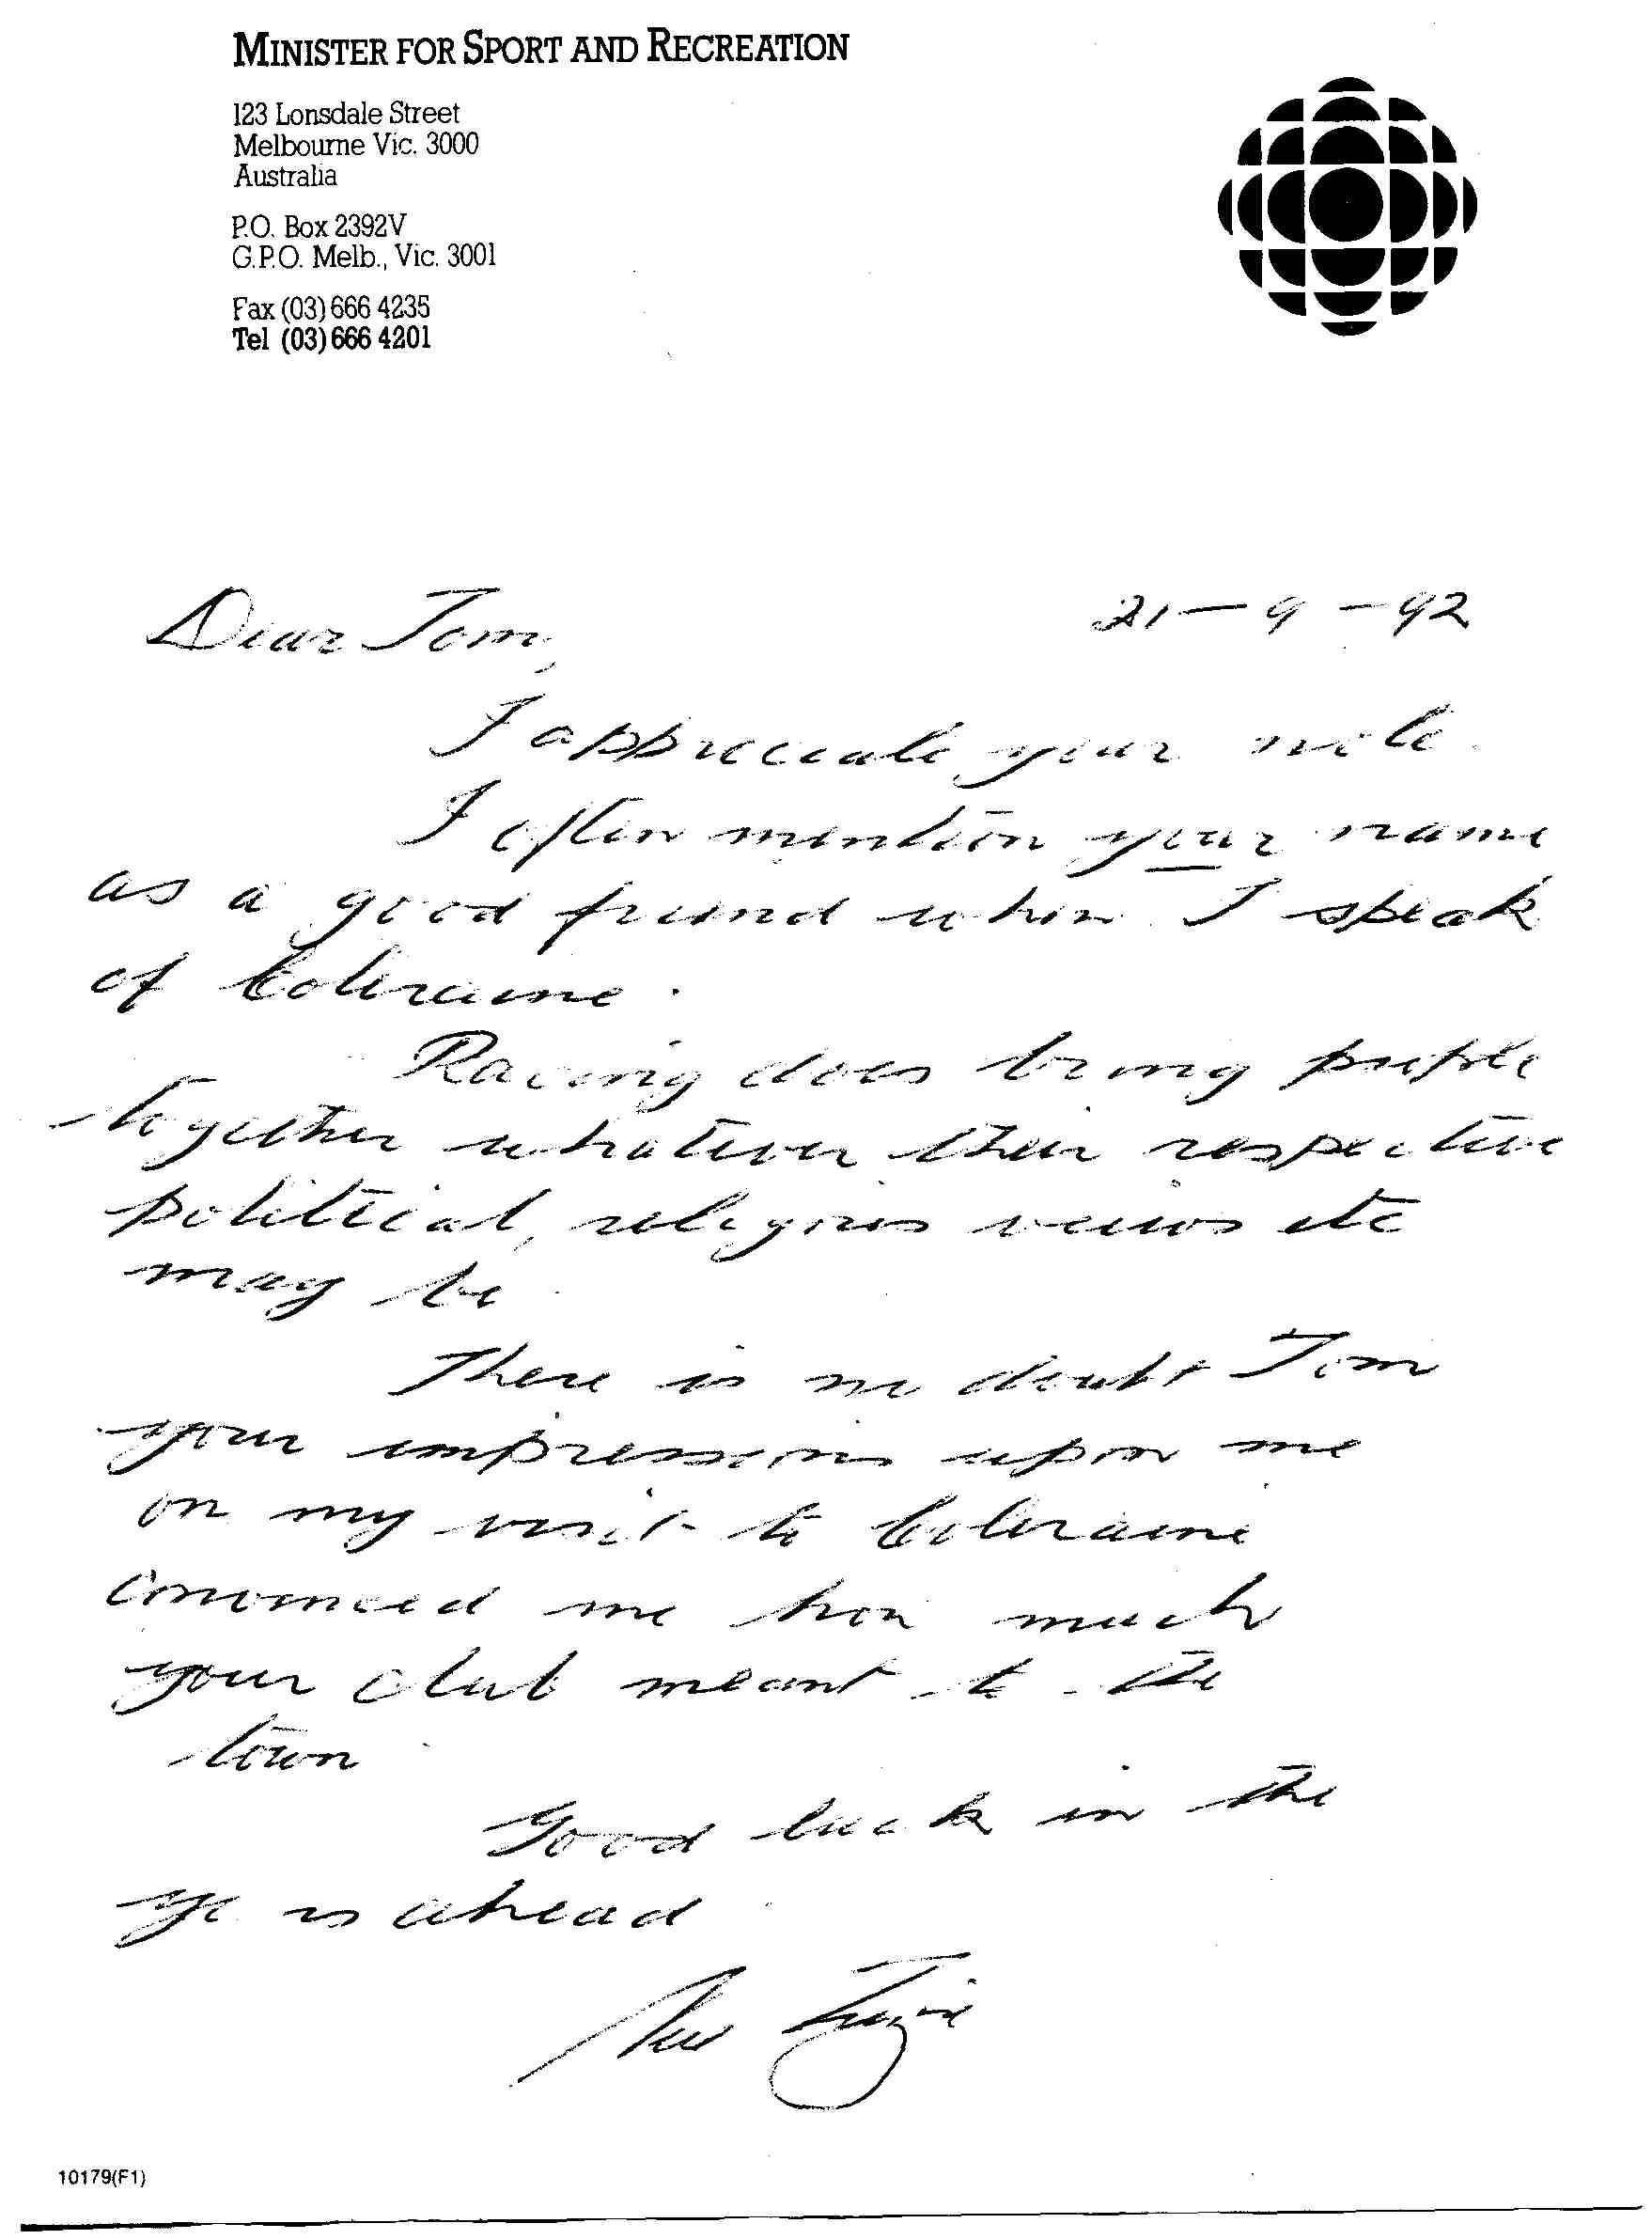 MINISTER FOR SPORT AND RECREATION
123 Lonsdale Street
Melbourne Vic. 3000
Australia
P.O. Box 2392V
G.P.O. Melb., Vic. 3001
Fax (03) 666 4235
Tel (03) 666 4201
Dear Tom, 21-9-92
I appreciate your note.
I often mention your name
as a good friend when I speak
of Coleraine.
Racing does bring people
together whatever their respective
political, religious views etc
may be.
There is no doubt Tom
your impressions upon me
on my visit to Coleraine
convinced me how much
your club meant to the
town.
Good luck in the
yrs ahead.
10179(F1)